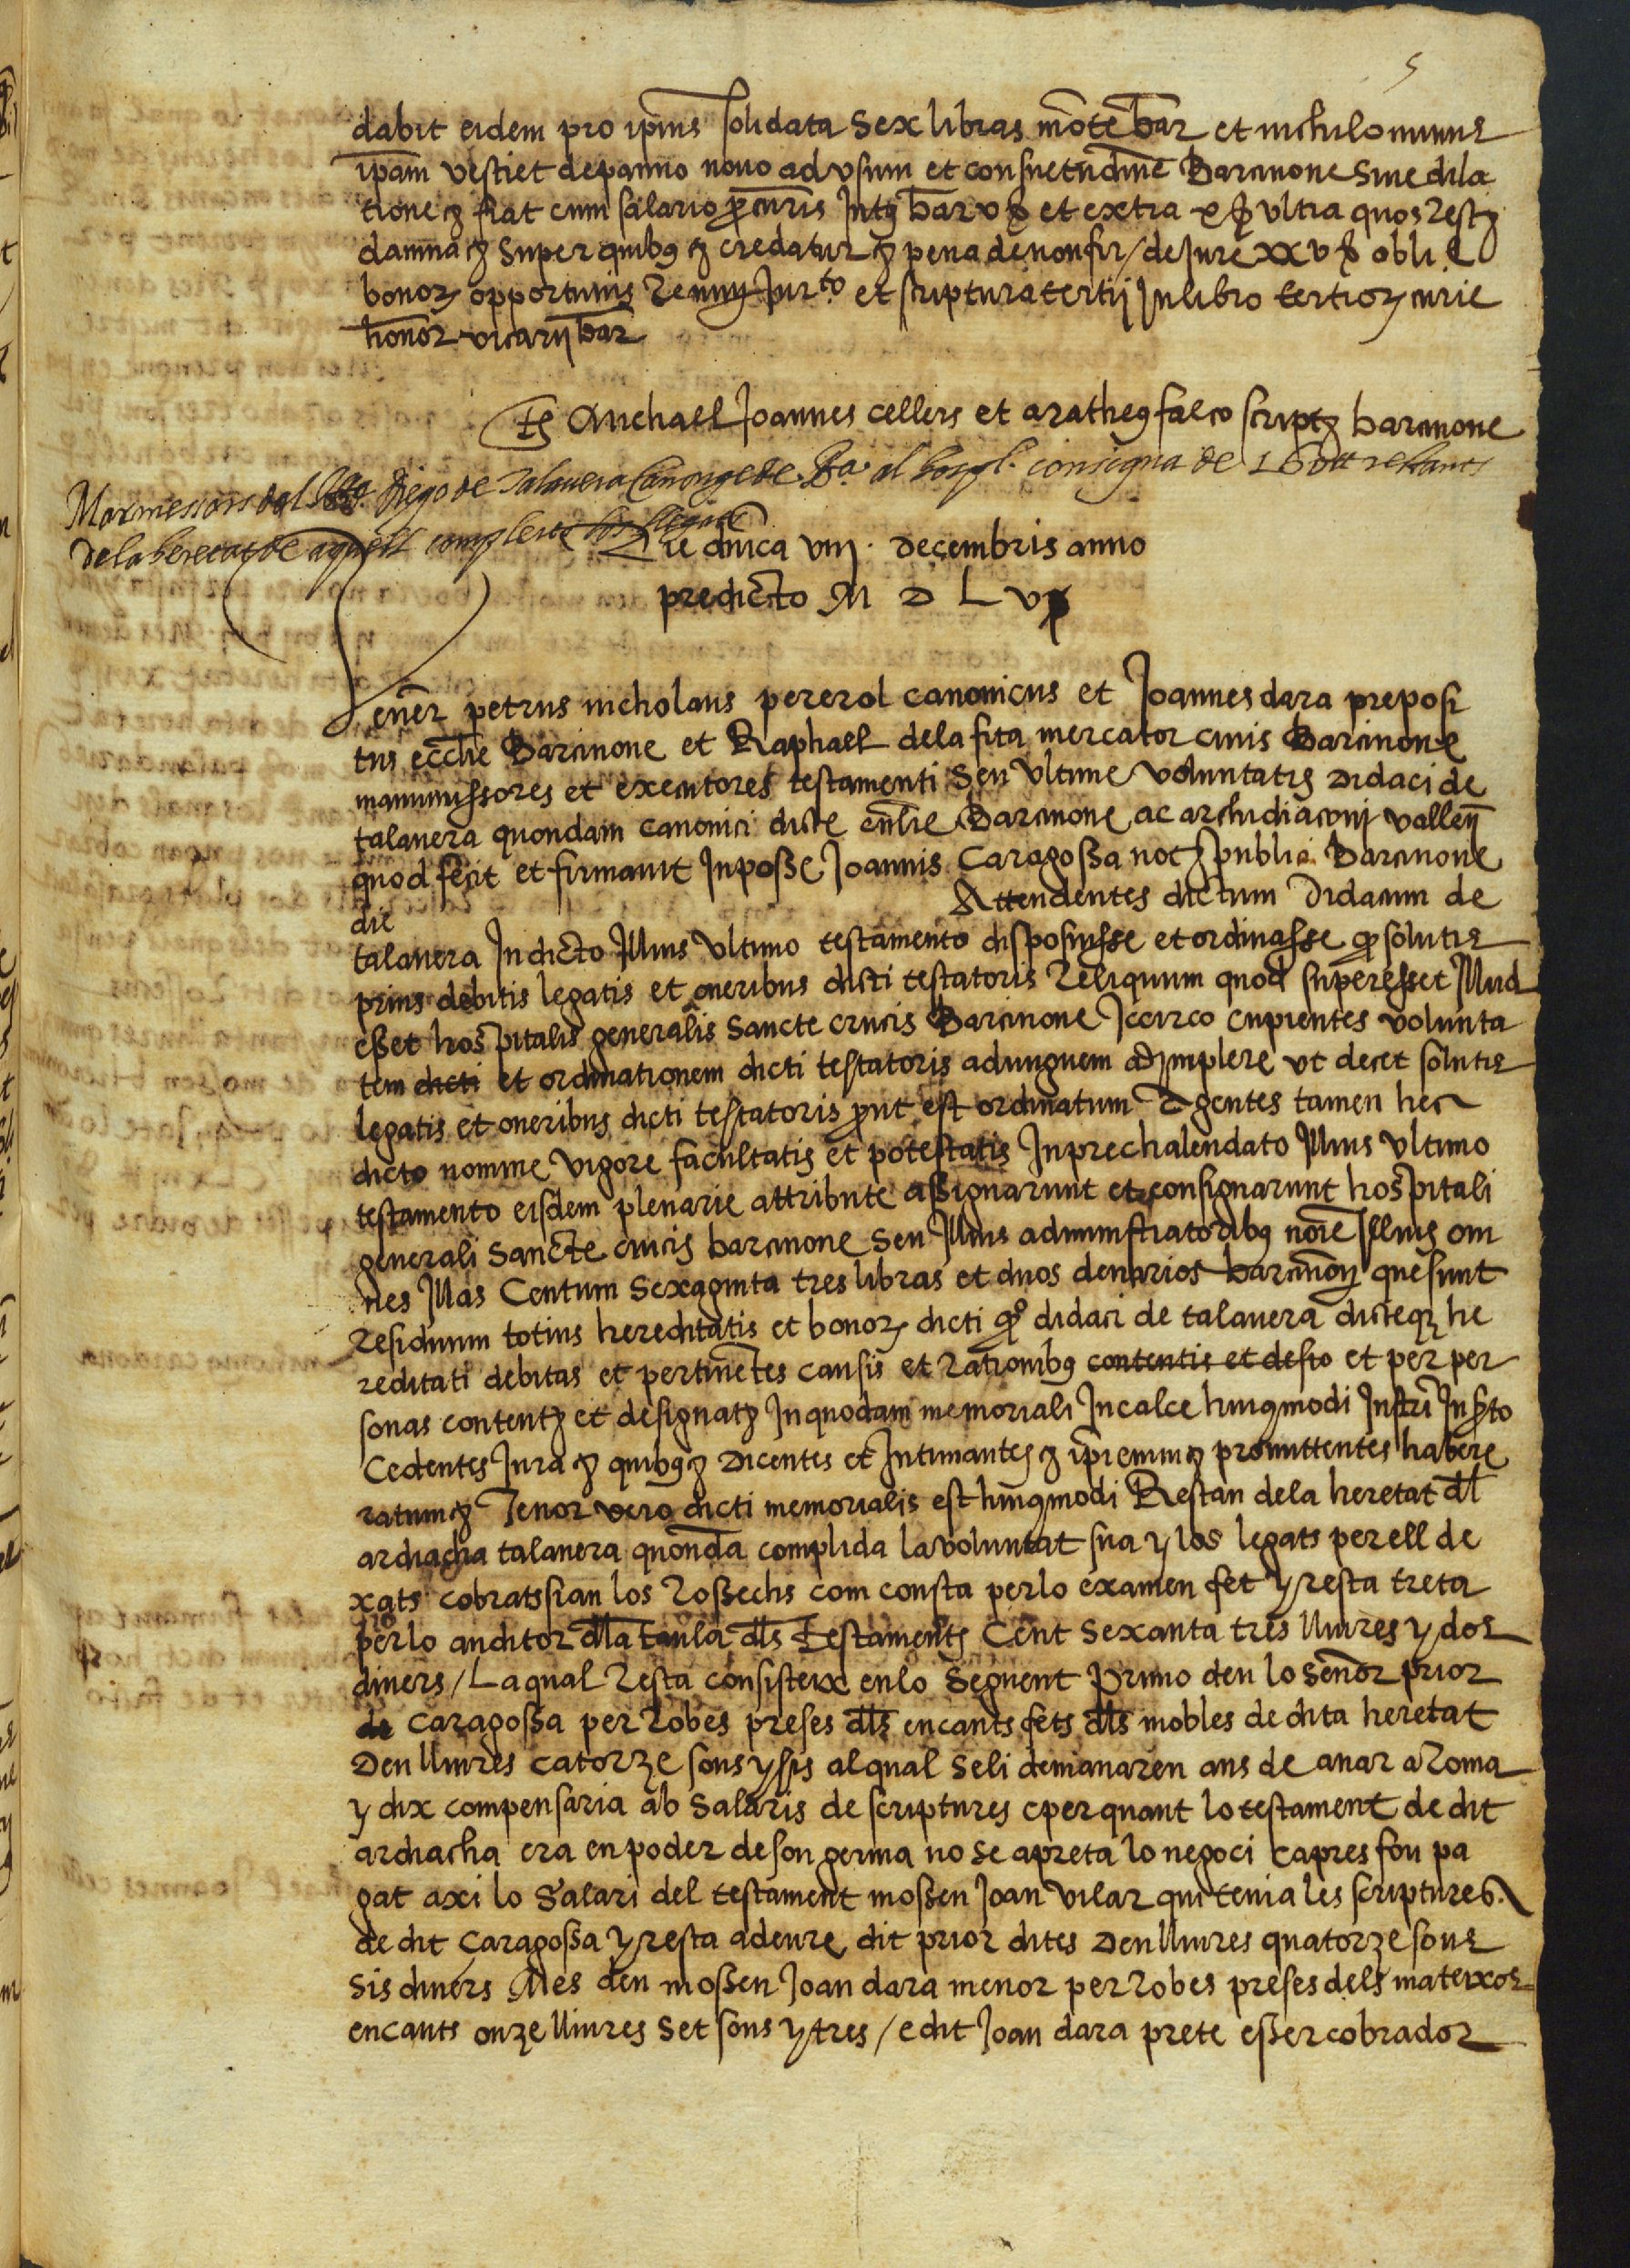 5
dabit eidem pro ipius solidata sex libras mōte bar et nichilominus
ipam vestiet de panno novo ad usum et consuetudine Barcinone sine dila
tione fiat cum salario procuris intus bar v ß et extra x ß ultra quos rest
damna super quibus credatur pena de non fir / de jure xxv ß obli.
bonor opportunis Renun Jurto et scriptura tertii In libro tertior curie
honor vicarij bar
Ts Michael Joannes cellers et Matheus falco script barcinone
Marmessors del Rt. diego de Talavera Canonge de Ba. al hospl. consigna de 163 tt restants
de la heretat de aquell complerts los llegats
Die dnica viij. decembris anno
predicto M D L vj
Vener petrus nicholaus pererol canonicus et Joannes dara preposi
tus ecclie Barcinone et Raphael dela fita mercator civis Barcinone
manumissores et executores testamenti seu ultime voluntatis Didaci de
talavera quondam canonici dicte ecclie Barcinone ac archidiaconi vallen
quod fecit et firmavit In posse Joannis Caragossa not publici Barcinone
die Attendentes dictum Didacum de
talavera In dicto Illius ultimo testamento disposuisse et ordinasse q solutis
prius debitis legatis et oneribus dicti testatoris Reliquum quod superesset Illud
esset hospitalis generalis Sancte crucis Barcinone Iccirco cupientes volunta
tem dicti et ordinationem dicti testatoris ad unguem adimplere ut decet solutis
legatis et oneribus dicti testatoris prout est ordinatum Agentes tamen hec
dicto nomine vigore facultatis et potestatis In prechalendato Illius ultimo
testamento eisdem plenarie attribute assignarunt et consignarunt hospitali
generali Sancte crucis barcinone seu Illius administratoribus nōie Illius om
nes Illas Centum sexaginta tres libras et duos denarios barcinon que sunt
Residuum totius hereditatis et bonor dicti qo didaci de talavera dicteq he
reditati debitas et pertinētes causis et rationibus contentis et desto et per per
sonas content et designat In quodam memoriali In calce huiusmodi Instri Inserto
Cedentes Jura quibus Dicentes et Intimantes ipremium promittentes habere
ratum Tenor vero dicti memorialis est huiusmodi Restan dela heretat dl
ardiacha talavera quonda complida la voluntat sua y los legats per ell de
xats cobrats sian los Rossechs com consta per lo examen fet y resta treta
per lo auditor dla taula dls Testaments Cent sexanta tres lliures y dos
diners / La qual Resta consisteix en lo seguent Primo deu lo senor prior
de Caragossa per Robes preses dls encants fets dls mobles de dita heretat
Deu lliures catorze sous y sis al qual se li demanaren ans de anar a Roma
y dix compensaria ab salaris de scriptures e per quant lo testament de dit
ardiacha era en poder de son germa no se apreta lo negoci e apres fou pa
gat axi lo salari del testament mossen Joan vilar qui tenia les scriptures.
de dit Caragossa y resta a deure dit prior dites Deu lliures quatorze sous
sis diners Mes deu mossen Joan dara menor per Robes preses dels mateixos
encants onze lliures set sous y tres / e dit Joan dara prete esser cobrador